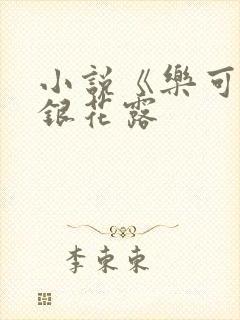 小說《樂可
銀花露
李東東